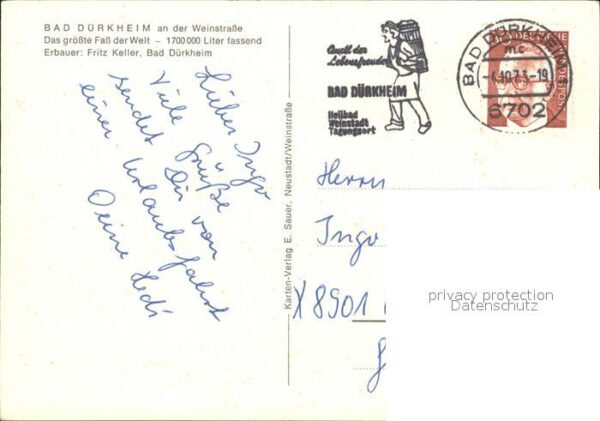 BAD DÜRKHEIM an der Weinstraße
Das größte Faß der Welt – 1700000 Liter fassend
Erbauer: Fritz Keller, Bad Dürkheim
Lieber Ingo
Viele Grüße
sendet Dir von
einer Urlaubsfahrt
Deine Hedi
Karten-Verlag E. Sauer, Neustadt/Weinstraße
Quell der
Lebensfreude
BAD DÜRKHEIM
Heilbad
Weinstadt
Tagungsort
BAD DÜRKHEIM
mc
10.73-19
6702
DEUTSCHE BUNDESPOST
Herrn
Ingo
X 8901
privacy protection
Datenschutz